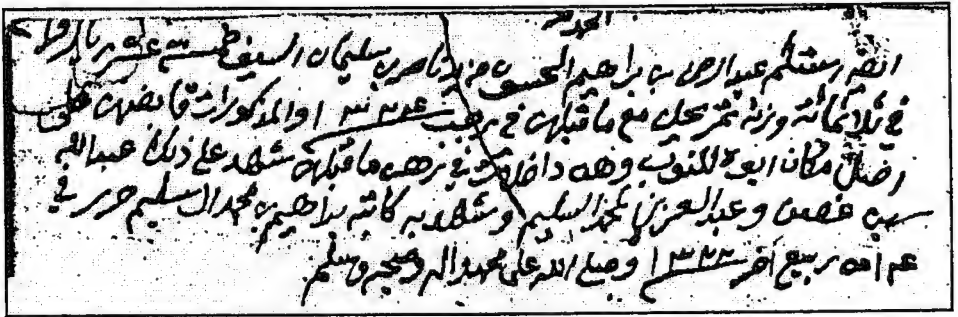 الحمد لله
ايضا استلم عبدالرحمن بن ابراهيم المحسن من يد ناصر بن سليمان السيف خمسة عشر ريال
في ثلاثمائة وزنة تمر يحلن مع ما قبلهن في رجب ١٣٢٤ والمذكورات قابضهن على
مكان ابوه وهن داخلات في رهن ما قبلهن شهد على ذلك عبدالله
بن وعبدالعزيز المحمد السليم وشهد به كاتبه ابراهيم بن محمد السليم حرر في
ربيع آخر ١٣٢٣ وصلى الله على محمد وآله وصحبه وسلم